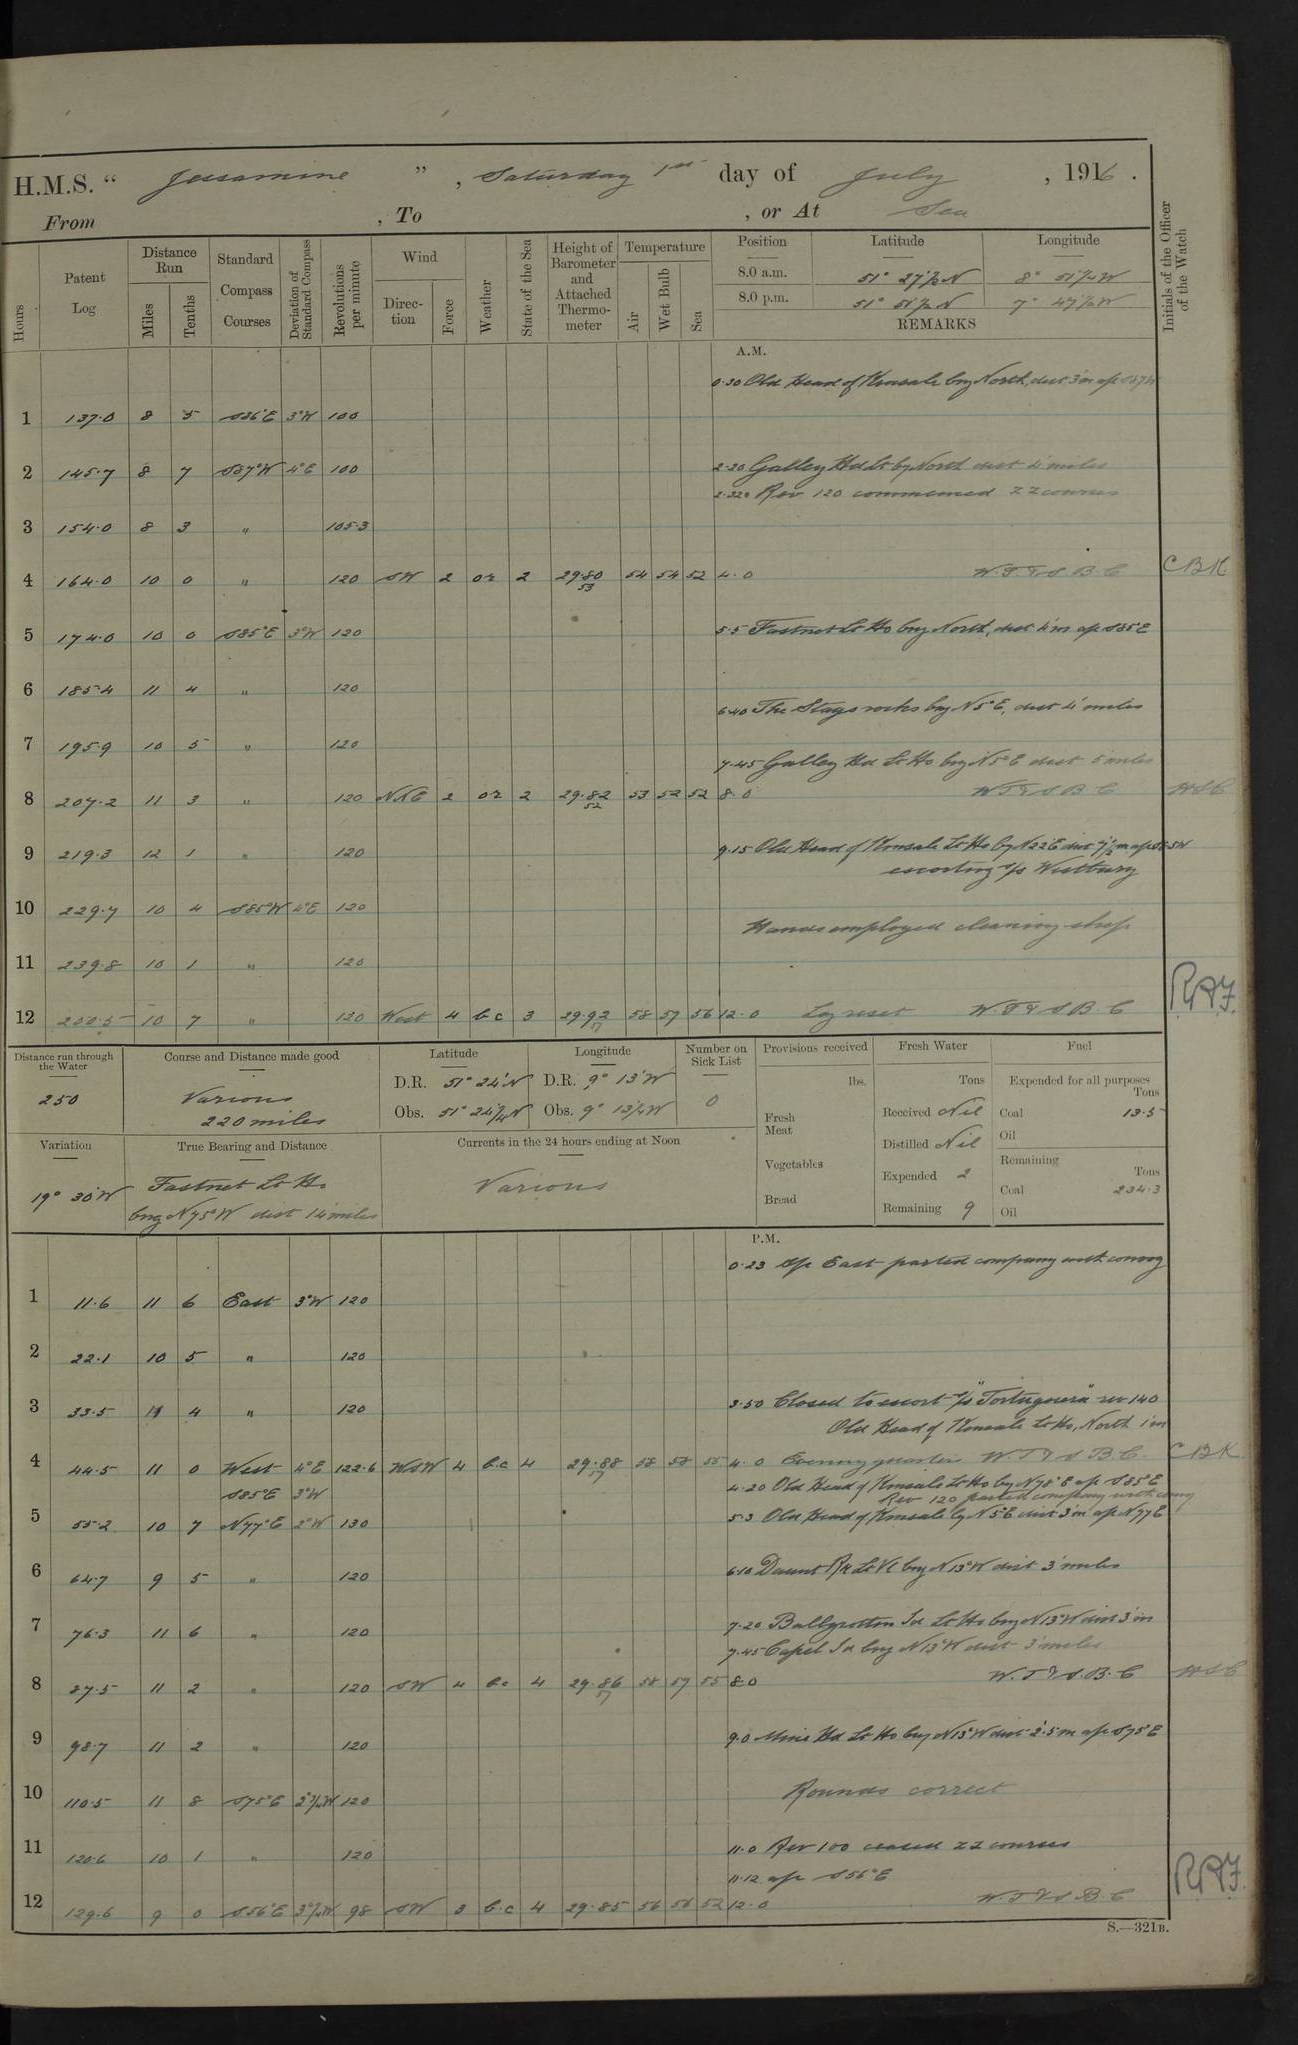 H.M.S. “ Jessamine ” , Saturday 1st day of July , 1916 .
From , To , or At Sea
Hours
Patent Log
Distance Run
Miles
Tenths
Standard Compass Courses
Deviation of Standard Compass
Revolutions per minute
Wind
Direc-tion
Force
Weather
State of the Sea
Height of Barometer and Attached Thermo-meter
Temperature
Air
Wet Bulb
Sea
Position Latitude Longitude
8.0 a.m. 51° N 8° W
8.0 p.m. 51° N 7° W
REMARKS
Initials of the Officer of the Watch
A.M.
0.30 Old Head of Kinsale brg North, dist 3'm a/c
1 137.0 8 5 S86°E 3°W 100
2 145.7 8 7 S87°W 4°E 100
2.20 Galley Hd Lt by North dist 4 miles
Rev 120 commenced ZZ courses
3 154.0 8 3 " 105.3
4 164.0 10 0 " 120 SW 2 or 2 29.80 53 54 54 52 4.0 W.T.& S.B.C CBK
5 174.0 10 0 S85°E 3°W 120
5.5 Fastnet Lt Ho brg North, dist 4'm a/c S85E
6 185.4 11 4 " 120
6.40 The Stags rocks brg N5°E, dist 4' miles
7 195.9 10 5 " 120
7.45 Galley Hd Lt Ho brg N5°E dist 5 miles
8 207.2 11 3 " 120 NxE 2 or 2 29.82 52 53 52 52 8.0 W T & S B C
9 219.3 12 1 " 120
9.15 Old Head of Kinsale Lt Ho by N22E dist 7½m a/c
escorting s/s Westbury
10 229.7 10 4 S85°W 4°E 120
Hands employed cleaning ship
11 239.8 10 1 " 120
12 250.5 10 7 " 120 West 4 b.c 3 29.92 57 58 57 56 12.0 Log reset W.T & S B.C
Distance run through the Water
250
Course and Distance made good
Various
220 miles
Latitude
D.R. 51° 24'N
Obs. 51° 24¼N
Longitude
D.R. 9° 13'W
Obs. 9° W
Number on Sick List
0
Variation
19° 30'W
True Bearing and Distance
Fastnet Lt Ho
brg N75°W dist 14 miles
Currents in the 24 hours ending at Noon
Various
Provisions received
lbs.
Fresh Meat
Vegetables
Bread
Fresh Water
Tons
Received Nil
Distilled Nil
Expended 2
Remaining 9
Fuel
Expended for all purposes
Tons
Coal 13.5
Oil
Remaining
Tons
Coal 234.3
Oil
P.M.
0.23 a/c East parted company with convoy
1 11.6 11 6 East 3°W 120
2 22.1 10 5 " 120
3 33.5 11 4 " 120
3.50 Closed to escort s/s "Tortuguero" rev 140
Old Head of Kinsale Lt Ho, North 1'm
4 44.5 11 0 West 4°E 122.6 WSW 4 b.c 4 29.88 57 58 58 55 4.0 Evening quarters W.T & S B.C. CBK
S85°E 3°W
4.20 Old Head of Kinsale Lt Ho by N78°E a/c S85°E
Rev 120 parted company with convoy
5 55.2 10 7 N77°E 3°W 130
5.3 Old Head of Kinsale by N5°E dist 3'm a/c N77E
6 64.7 9 5 " 120
6.10 Daunt Rk Lt Vl brg N13°W dist 3 miles
7 76.3 11 6 " 120
7.20 Ballycotton Id Lt Ho brg N13°W dist 3'm
7.45 Capel Id brg N13°W dist 3 miles
8 87.5 11 2 " 120 SW 4 b.c 4 29.86 57 58 57 55 8.0 W.T & S.B.C
9 98.7 11 2 " 120
9.0 Mine Hd Lt Ho brg N13°W dist 2.5m a/c S75E
10 110.5 11 8 S75°E 120
Rounds correct
11 120.6 10 1 " 120
11.0 Rev 100 ceased ZZ courses
11.12 a/c S56°E
12 129.6 9 0 S56°E 98 SW 3 b.c 4 29.85 56 56 52 12.0 W T & S B.C
S.—321B.